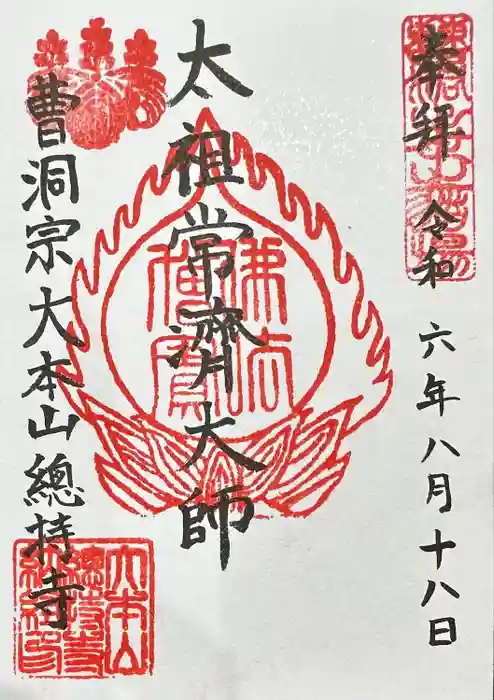 奉拜 令和六年八月十八日
太祖常濟大師
曹洞宗大本山總持寺
大本山
總持寺